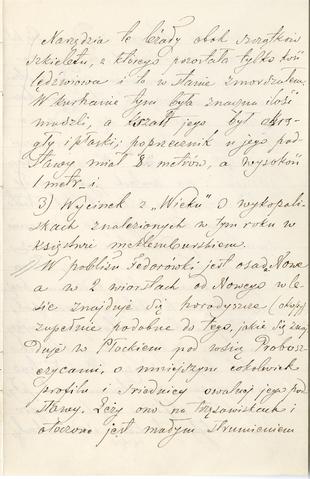 Narzędzia te leżały obok szczątków
szkieletu, z którego pozostała tylko kość
lędźwiowa i to w stanie zmurszałem.
W kurhanie tym była znaczna ilość
muszli, a kształt jego był okrą-
gły i płaski; poprzecznik u jego pod-
stawy miał 8 metrów, a wysokość
1 metr
3) Wycinek z „Wieku" O wykopali-
skach znalezionych w tym roku w
księstwie meklemburskiem.
W pobliżu Fedorówki jest osada Nowe
a w 2 wiorstach od Nowego w le-
sie znajduje się horodyszcze
zupełnie podobne do tego, jakie się znaj
duje w Płockiem pod wsią Probosz-
czycami, o mniejszym cokolwiek
profilu i średnicy owalnej jego pod
stawy. Leży ono na trzęsawiskach i
otoczone jest małym strumieniem